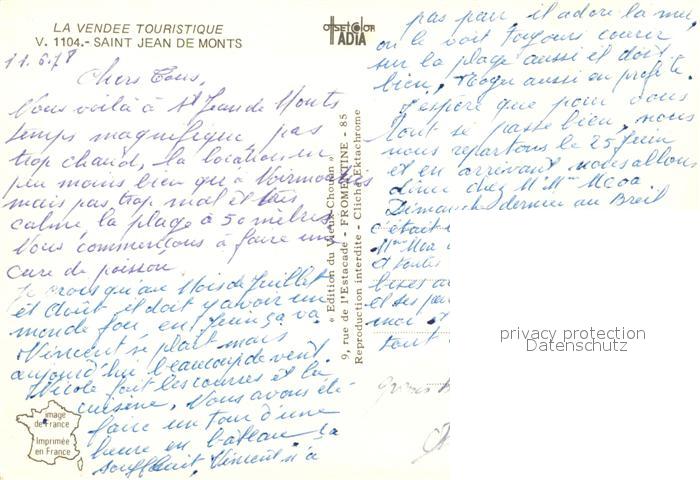 LA VENDEE TOURISTIQUE
V. 1104.- SAINT JEAN DE MONTS
11.6.78
Chers Tous,
Nous voilà à St Jean de Monts
temps magnifique pas
trop chaud, la location un
peu moins bien qu'à Noirmoutiers
mais pas trop mal et très
calme, la plage à 50 mètres
Nous commençons à faire une
cure de poisson,
Je crois qu'au Mois de Juillet
et Août il doit y avoir un
monde fou, en Juin ça va
Vincent se plait mais
aujourd'hui beaucoup de vent.
Nicole fait les courses et la
cuisine, Nous avons été
faire un tour d'une
heure en bâteau ça
soufflait, Vincent n'a
image
de France
Imprimée
en France
offset color
IADIA
« Edition du Vieux-Chouan »
9, rue de l'Estacade - FROMENTINE - 85
Reproduction interdite - Cliché Ektachrome
pas peur il adore la mer,
on le voit toujours courir
sur la plage aussi et doit
bien, aussi en profite.
J'espère que pour vous
tout se passe bien, nous
nous repartons le 25 Juin
et en arrivant nous allons
diner chez Mr Mme
Dimanche dernier au Breil
c'était
Mme
et toutes
bises
et ses
moi
tout
privacy protection
Datenschutz